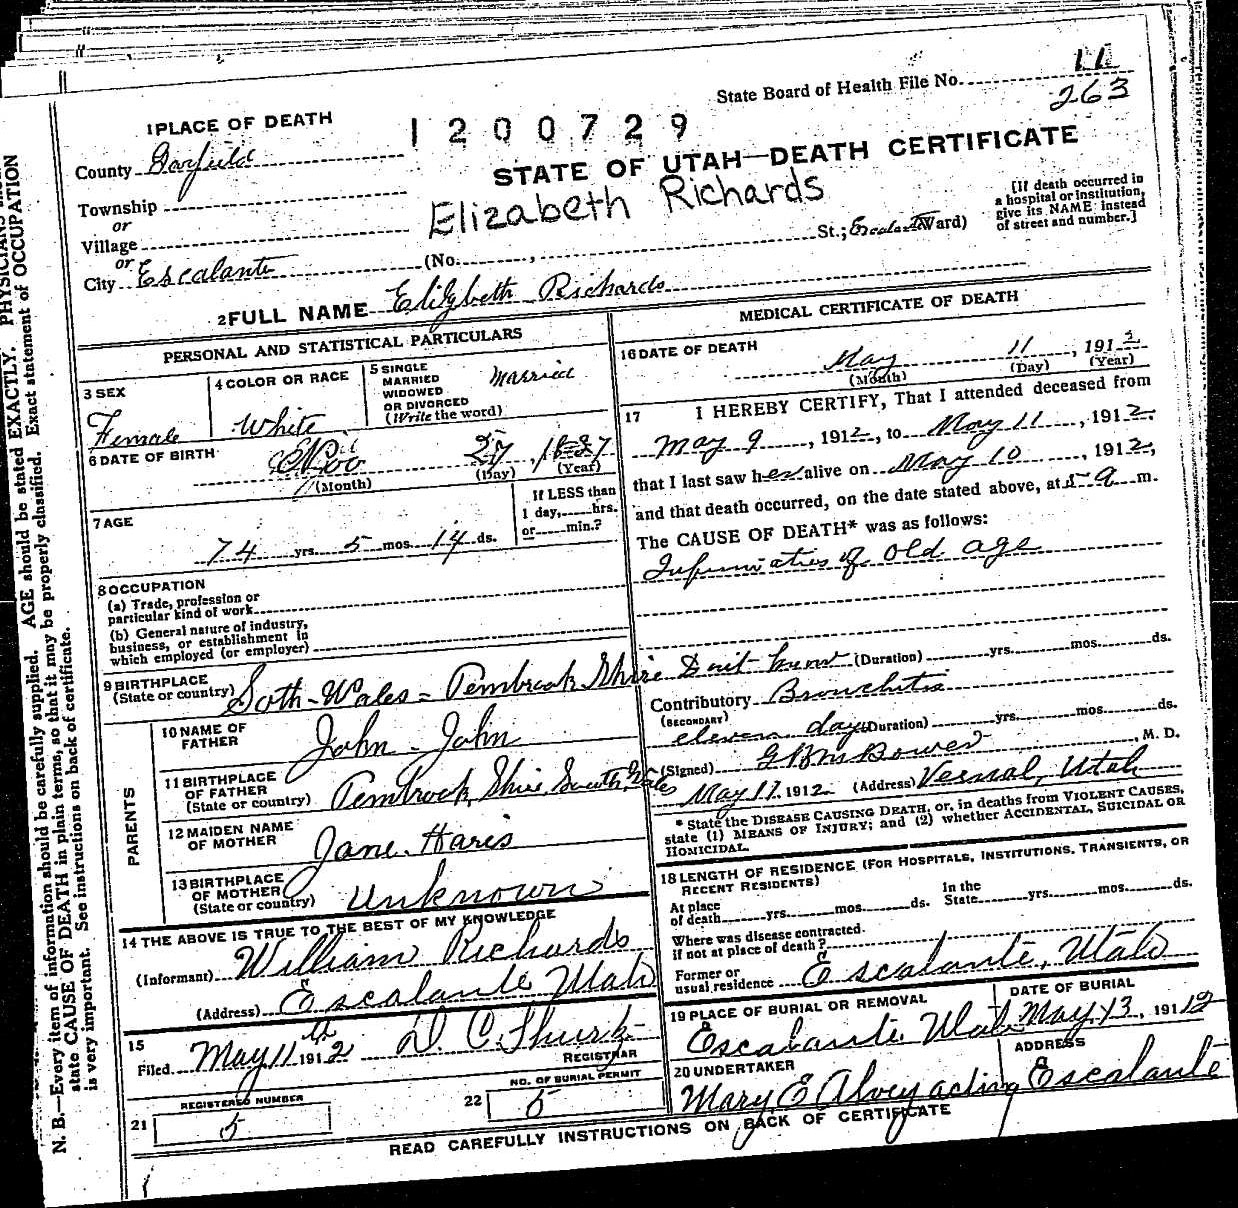 State Board of Health File No. 11
263
1 PLACE OF DEATH
1200729
County Garfield
STATE OF UTAH—DEATH CERTIFICATE
Township
or
Elizabeth Richards
[If death occurred in
a hospital or institution,
give its NAME instead
of street and number.]
Village
or
City Escalante (No. , St.; Escalante Ward)
2 FULL NAME Elizybeth Richards
PERSONAL AND STATISTICAL PARTICULARS
3 SEX
Female
4 COLOR OR RACE
White
5 SINGLE
MARRIED
WIDOWED
OR DIVORCED
(Write the word)
Married
6 DATE OF BIRTH
27, 1837
(Month) (Day) (Year)
7 AGE
74 yrs. 5 mos. 14 ds.
If LESS than
1 day, hrs.
or min.?
8 OCCUPATION
(a) Trade, profession or
particular kind of work
(b) General nature of industry,
business, or establishment in
which employed (or employer)
9 BIRTHPLACE
(State or country) Soth-Wales = Pembrook Shire
PARENTS
10 NAME OF
FATHER
John John
11 BIRTHPLACE
OF FATHER
(State or country) Pembrock Shire South Wales
12 MAIDEN NAME
OF MOTHER
Jane Haris
13 BIRTHPLACE
OF MOTHER
(State or country) Unknown
14 THE ABOVE IS TRUE TO THE BEST OF MY KNOWLEDGE
(Informant) William Richards
(Address) Escalante Utah
15
Filed May 11th 1912 D. C. Shurtz
REGISTRAR
21 REGISTERED NUMBER
5
22 NO. OF BURIAL PERMIT
5
MEDICAL CERTIFICATE OF DEATH
16 DATE OF DEATH
May 11, 1912
(Month) (Day) (Year)
17 I HEREBY CERTIFY, That I attended deceased from
May 9, 1912, to May 11, 1912.
that I last saw her alive on May 10, 1912,
and that death occurred, on the date stated above, at 5 a m.
The CAUSE OF DEATH* was as follows:
Infirmities of old age
Don't know (Duration) yrs. mos. ds.
Contributory Bronchitis
(SECONDARY)
eleven days (Duration) yrs. mos. ds.
(Signed) M. D.
May 17, 1912 (Address) Vernal, Utah
* State the DISEASE CAUSING DEATH, or, in deaths from VIOLENT CAUSES,
state (1) MEANS OF INJURY; and (2) whether ACCIDENTAL, SUICIDAL OR
HOMICIDAL.
18 LENGTH OF RESIDENCE (FOR HOSPITALS, INSTITUTIONS, TRANSIENTS, OR
RECENT RESIDENTS)
At place
of death yrs. mos. ds.
In the
State yrs. mos. ds.
Where was disease contracted
if not at place of death?
Former or
usual residence Escalante, Utah
19 PLACE OF BURIAL OR REMOVAL
Escalante Utah
DATE OF BURIAL
May 13, 19112
20 UNDERTAKER
Mary E Alvey acting
ADDRESS
Escalante
READ CAREFULLY INSTRUCTIONS ON BACK OF CERTIFICATE
N. B.—Every item of information should be carefully supplied. AGE should be stated EXACTLY. PHYSICIANS
state CAUSE OF DEATH in plain terms, so that it may be properly classified. Exact statement of OCCUPATION
is very important. See instructions on back of certificate.